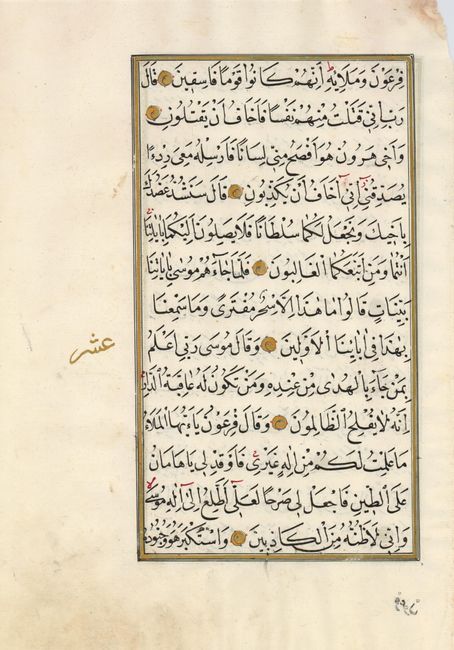 فِرْعَوْنَ وَمَلَائِهِ اِنَّهُمْ كَانُوا قَوْمًا فَاسِقِينَ قَالَ
رَبِّ اِنِّي قَتَلْتُ مِنْهُمْ نَفْسًا فَاَخَافُ اَنْ يَقْتُلُونِ
وَاَخِي هٰرُونُ هُوَ اَفْصَحُ مِنِّي لِسَانًا فَاَرْسِلْهُ مَعِيَ رِدْءًا
يُصَدِّقُنِي اِنِّي اَخَافُ اَنْ يُكَذِّبُونِ قَالَ سَنَشُدُّ عَضُدَكَ
بِاَخِيكَ وَنَجْعَلُ لَكُمَا سُلْطَانًا فَلَا يَصِلُونَ اِلَيْكُمَا بِاٰيَاتِنَا
اَنْتُمَا وَمَنِ اتَّبَعَكُمَا الْغَالِبُونَ فَلَمَّا جَاءَهُمْ مُوسٰى بِاٰيَاتِنَا
بَيِّنَاتٍ قَالُوا مَا هٰذَا اِلَّا سِحْرٌ مُفْتَرًى وَمَا سَمِعْنَا
بِهٰذَا فِي اٰبَائِنَا الْاَوَّلِينَ وَقَالَ مُوسٰى رَبِّي اَعْلَمُ
بِمَنْ جَاءَ بِالْهُدٰى مِنْ عِنْدِهِ وَمَنْ تَكُونُ لَهُ عَاقِبَةُ الدَّارِ
اِنَّهُ لَا يُفْلِحُ الظَّالِمُونَ وَقَالَ فِرْعَوْنُ يَا اَيُّهَا الْمَلَاُ
مَا عَلِمْتُ لَكُمْ مِنْ اِلٰهٍ غَيْرِي فَاَوْقِدْ لِي يَا هَامَانُ
عَلَى الطِّينِ فَاجْعَلْ لِي صَرْحًا لَعَلِّي اَطَّلِعُ اِلٰى اِلٰهِ مُوسٰى
وَاِنِّي لَاَظُنُّهُ مِنَ الْكَاذِبِينَ وَاسْتَكْبَرَ هُوَ وَجُنُودُهُ
عشر